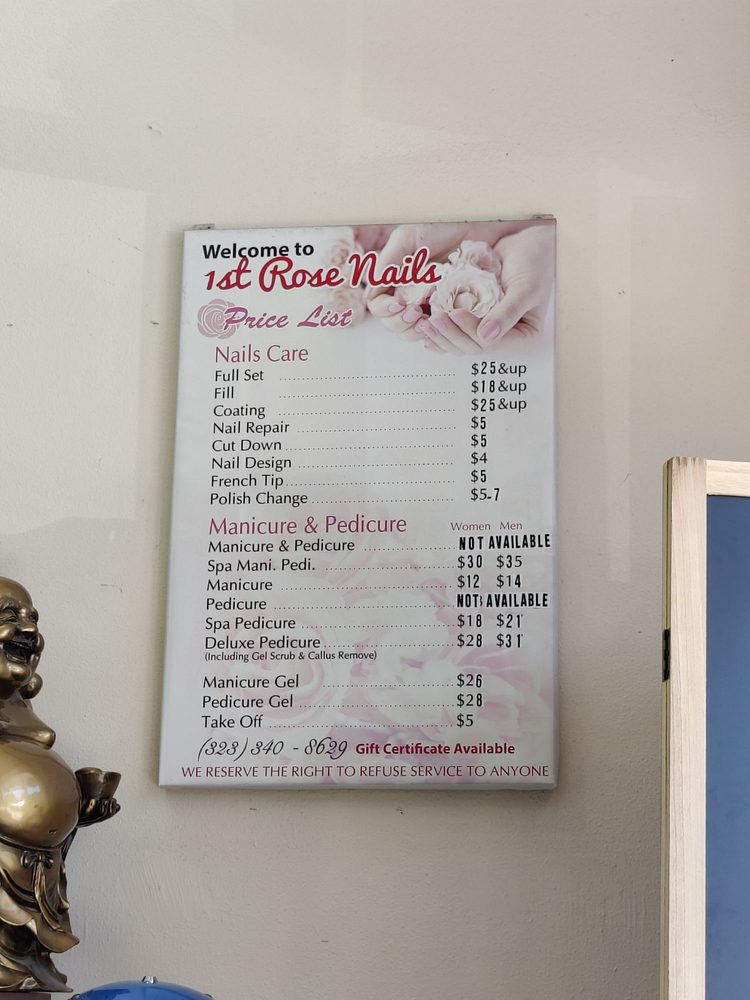 Welcome to
1st Rose Nails
Price List
Nails Care
Full Set ........ $25&up
Fill ........ $18&up
Coating ........ $25&up
Nail Repair ........ $5
Cut Down ........ $5
Nail Design ........ $4
French Tip ........ $5
Polish Change ........ $5-7
Manicure & Pedicure Women Men
Manicure & Pedicure ........ NOT AVAILABLE
Spa Mani. Pedi. ........ $30 $35
Manicure ........ $12 $14
Pedicure ........ NOT AVAILABLE
Spa Pedicure ........ $18 $21
Deluxe Pedicure ........ $28 $31
(Including Gel Scrub & Callus Remove)
Manicure Gel ........ $26
Pedicure Gel ........ $28
Take Off ........ $5
(323) 340 - 8629 Gift Certificate Available
WE RESERVE THE RIGHT TO REFUSE SERVICE TO ANYONE